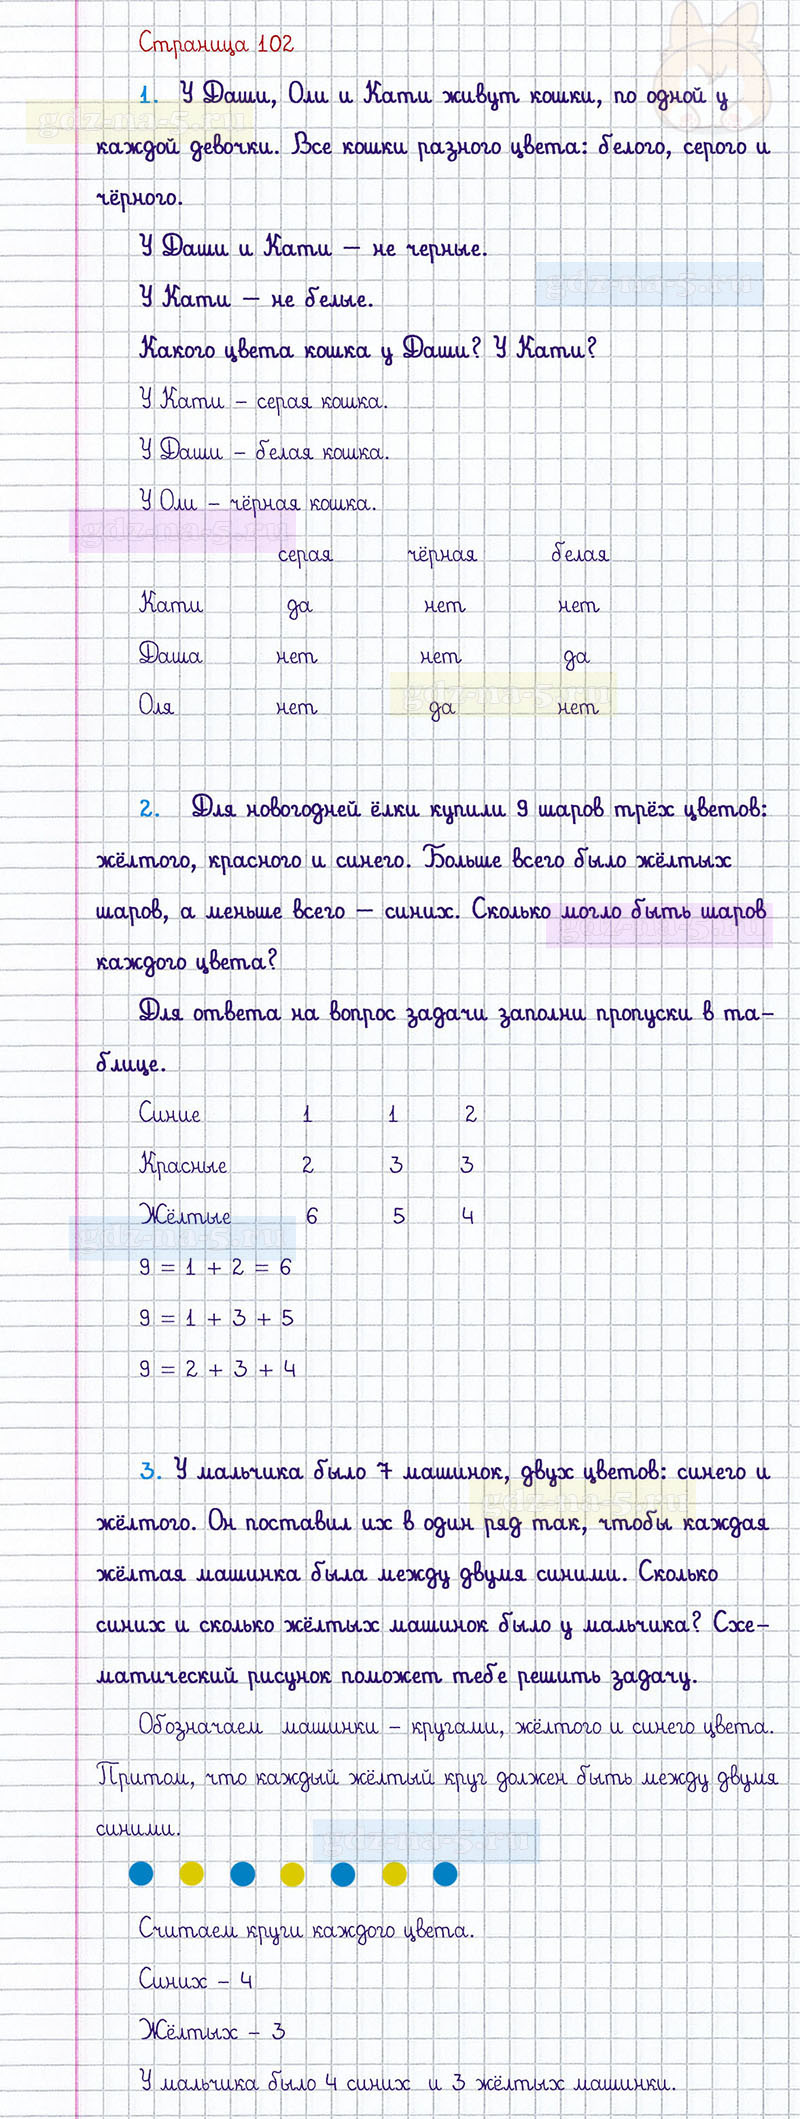 Страница 102
1. У Даши, Оли и Кати живут кошки, по одной у
каждой девочки. Все кошки разного цвета: белого, серого и
чёрного.
У Даши и Кати – не черные.
У Кати – не белые.
Какого цвета кошка у Даши? У Кати?
У Кати – серая кошка.
У Даши – белая кошка.
У Оли – чёрная кошка.
серая чёрная белая
Кати да нет нет
Даша нет нет да
Оля нет да нет
2. Для новогодней ёлки купили 9 шаров трёх цветов:
жёлтого, красного и синего. Больше всего было жёлтых
шаров, а меньше всего – синих. Сколько могло быть шаров
каждого цвета?
Для ответа на вопрос задачи заполни пропуски в та-
блице.
Синие 1 1 2
Красные 2 3 3
Жёлтые 6 5 4
9 = 1 + 2 = 6
9 = 1 + 3 + 5
9 = 2 + 3 + 4
3. У мальчика было 7 машинок, двух цветов: синего и
жёлтого. Он поставил их в один ряд так, чтобы каждая
жёлтая машинка была между двумя синими. Сколько
синих и сколько жёлтых машинок было у мальчика? Схе-
матический рисунок поможет тебе решить задачу.
Обозначаем машинки – кругами, жёлтого и синего цвета.
Притом, что каждый жёлтый круг должен быть между двумя
синими.
Считаем круги каждого цвета.
Синих – 4
Жёлтых – 3
У мальчика было 4 синих и 3 жёлтых машинки.
gdz-na-5.ru
gdz-na-5.ru
gdz-na-5.ru
gdz-na-5.ru
gdz-na-5.ru
gdz-na-5.ru
gdz-na-5.ru
gdz-na-5.ru